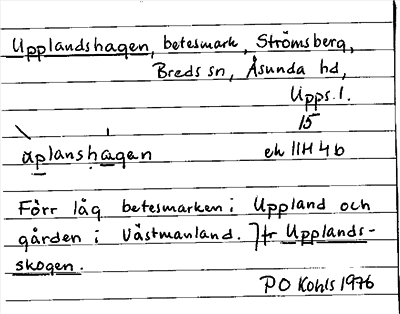 Upplandshagen, betesmark, Strömsberg,
Breds sn, Åsunda hd,
Upps. l.
15
ùplanshagen ek 11H 4b
Förr låg betesmarken i Uppland och
gården i Västmanland. Jfr Upplands-
skogen.
PO Kohls 1976